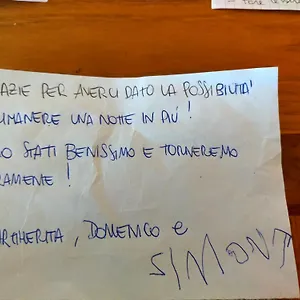 AZIE PER AVERCI DATO LA POSSIBILITA'
RIMANERE UNA NOTTE IN PIÙ!
O STATI BENISSIMO E TORNEREMO
RAMENTE!
RGHERITA, DOMENICO e
SIMONT